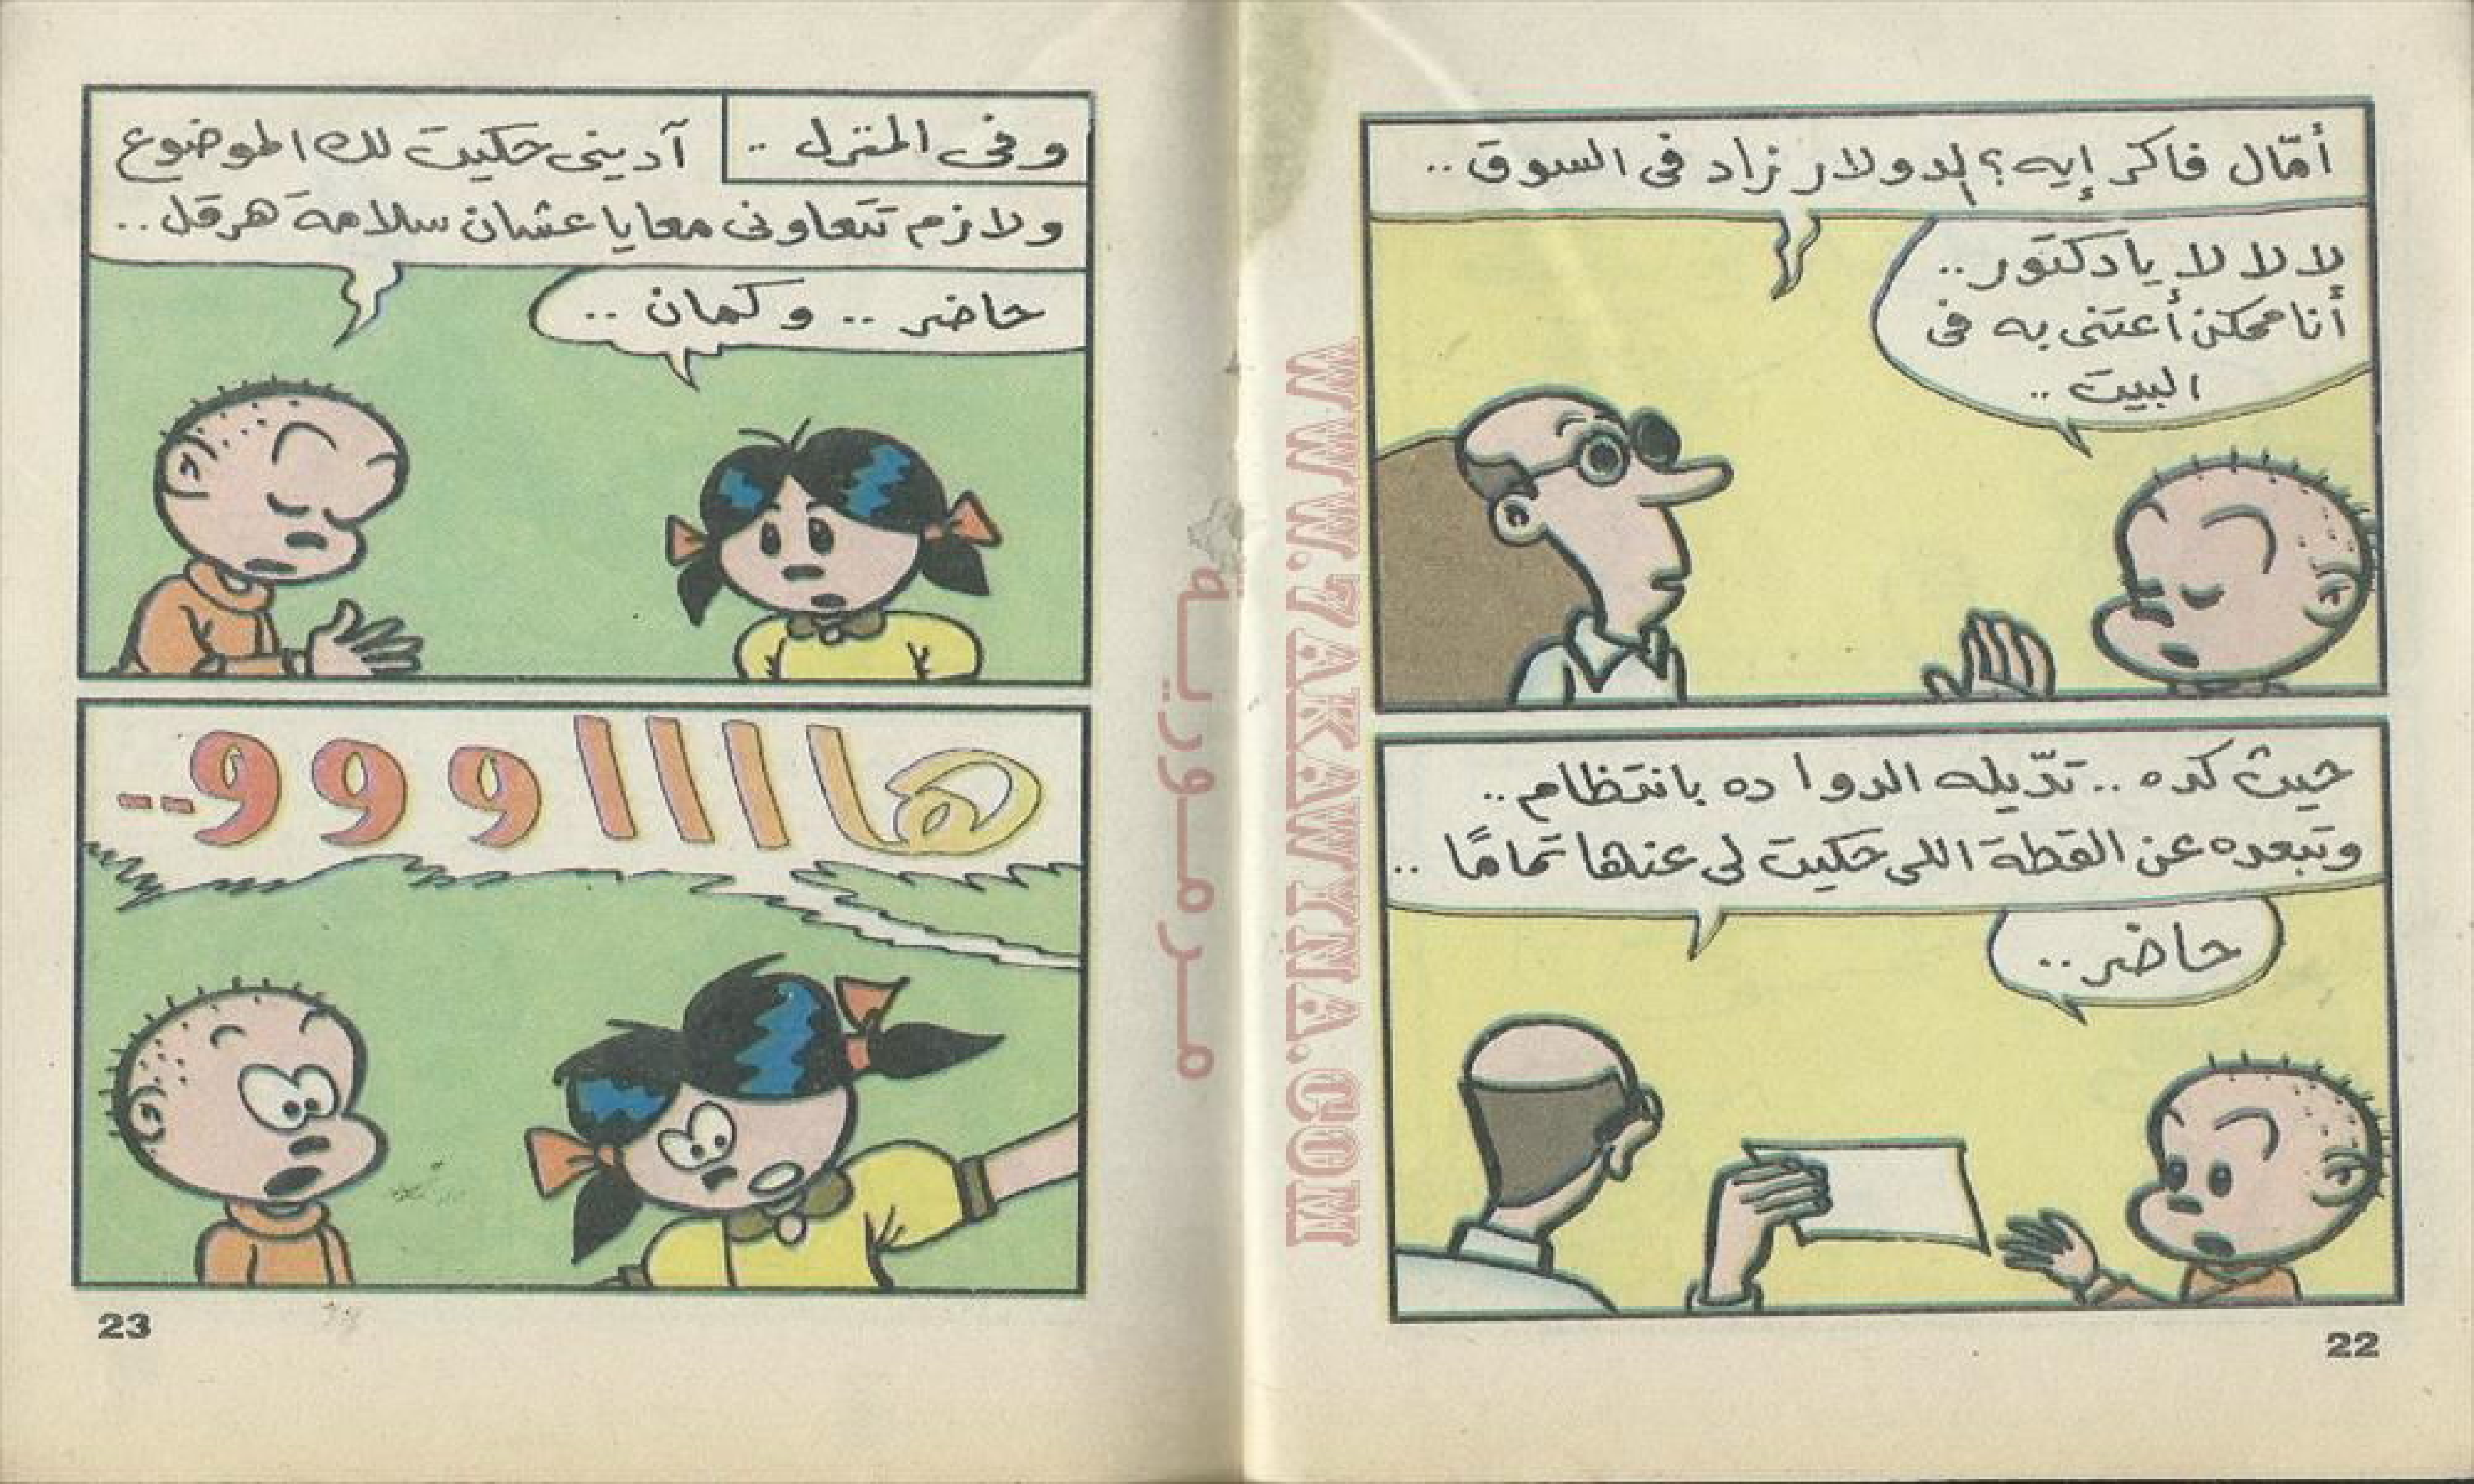 أمّال فاكر إيه؟ الدولار زاد فى السوق ..
لا لا لا يا دكتور ..
أنا ممكن أعتنى به فى
البيت ..
حيث كده .. تدّيله الدوا ده بانتظام ..
وتبعده عن القطة اللى حكيت لى عنها تمامًا ..
حاضر ..
22
وفى المنزل ..
آدينى حكيت لك الموضوع
ولازم تتعاونى معايا عشان سلامة هرقل ..
حاضر .. وكمان ..
هاااااووو --
23
مرمورية
WWW.7AKAWYNA.COM